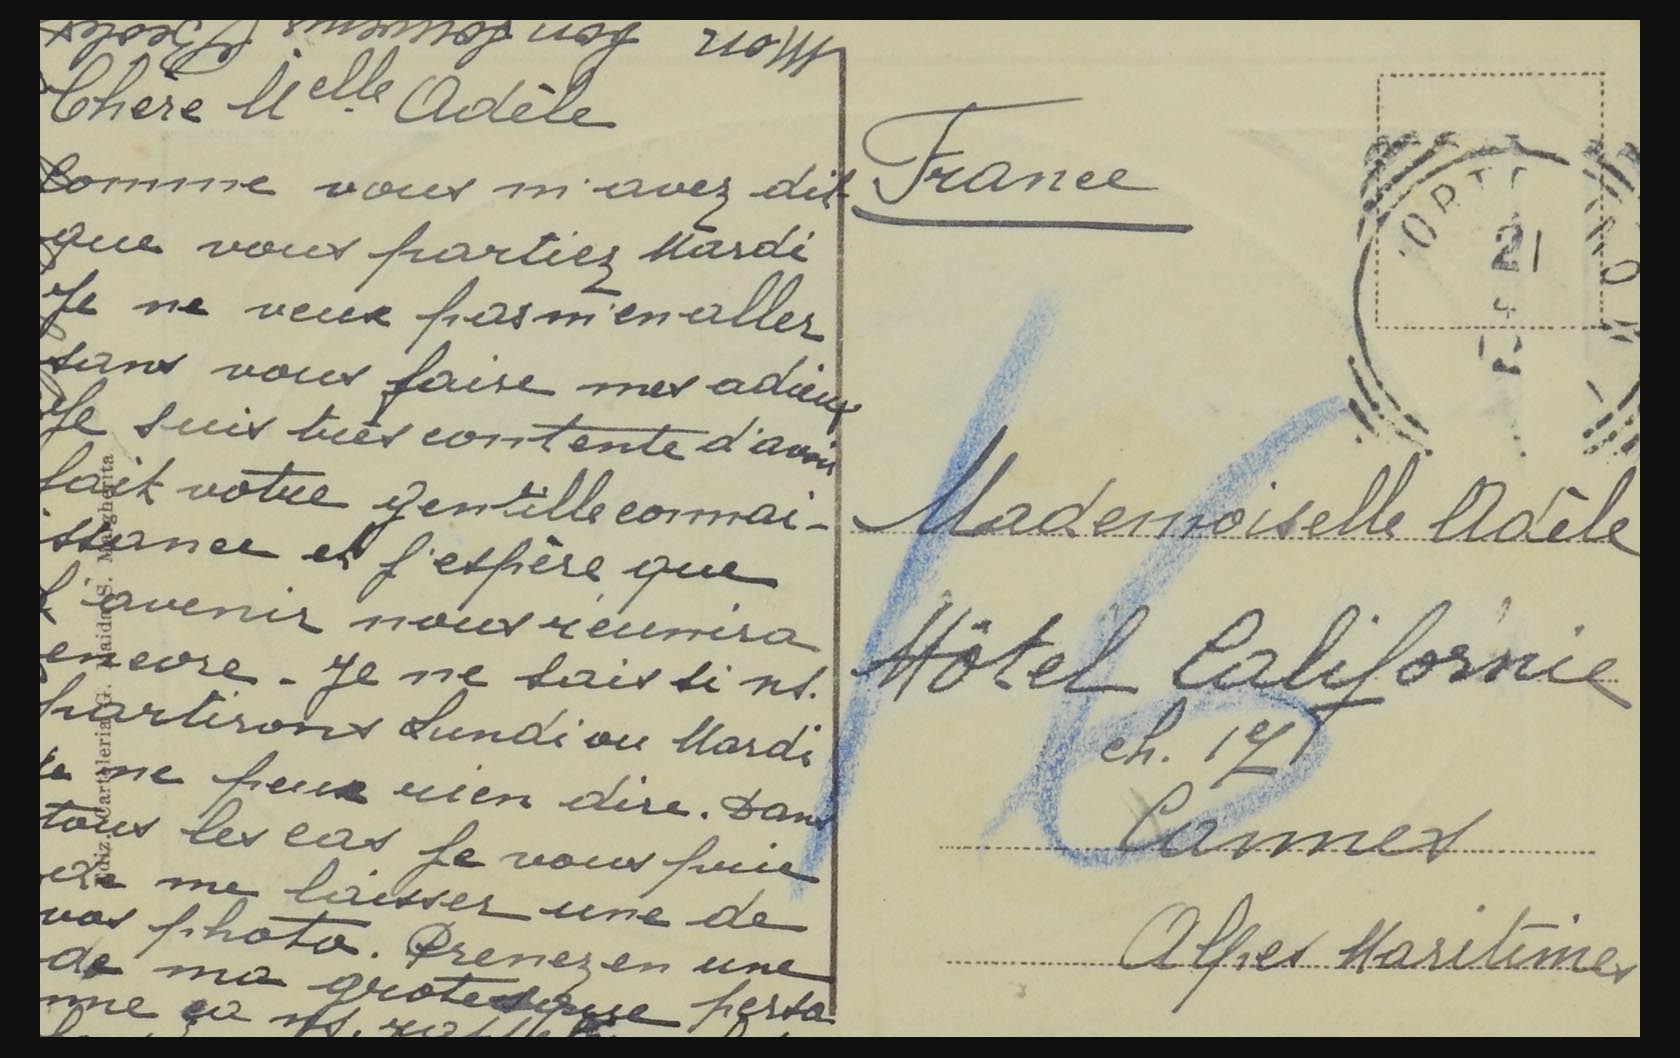 Mon bon
Chère Melle Adèle
Comme vous m'avez dit
que vous partiez Mardi
Je ne veux pas m'en aller
sans vous faire mes adieux
Je suis très contente d'avoir
fait votre gentille connai-
ssance et j'espère que
l'avenir nous réunira
encore - Je ne sais si ns.
partirons Lundi ou Mardi
Je ne peux rien dire. Dans
tous les cas je vous prie
de me laisser une de
vos photo. Prenez en une
de ma grotesque perso
nne ça ns.
France
Mademoiselle Adèle
Hôtel Californie
ch. 171
Cannes
Alpes Maritimes
16
21
Ediz. Cartoleria G. Maida S. Margherita